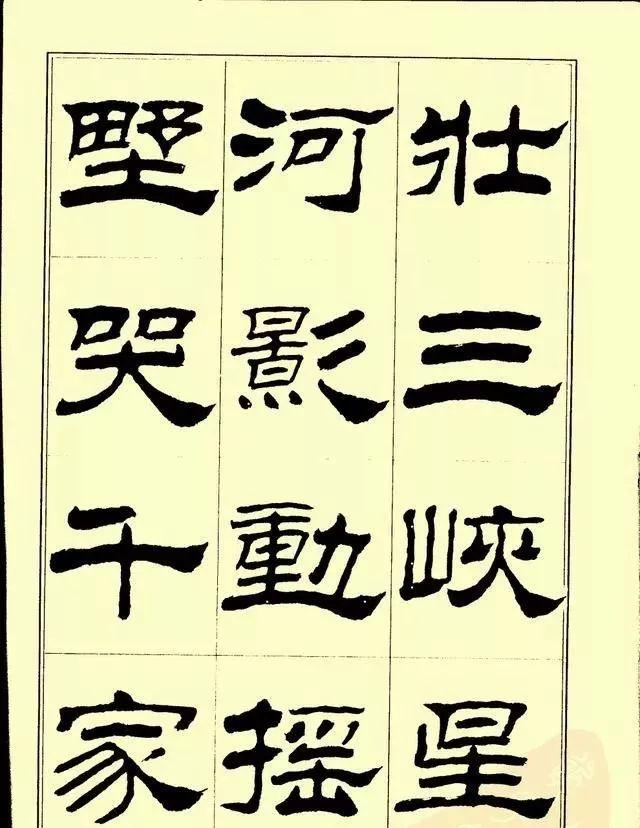 壮三峡星
河影動摇
野哭千家